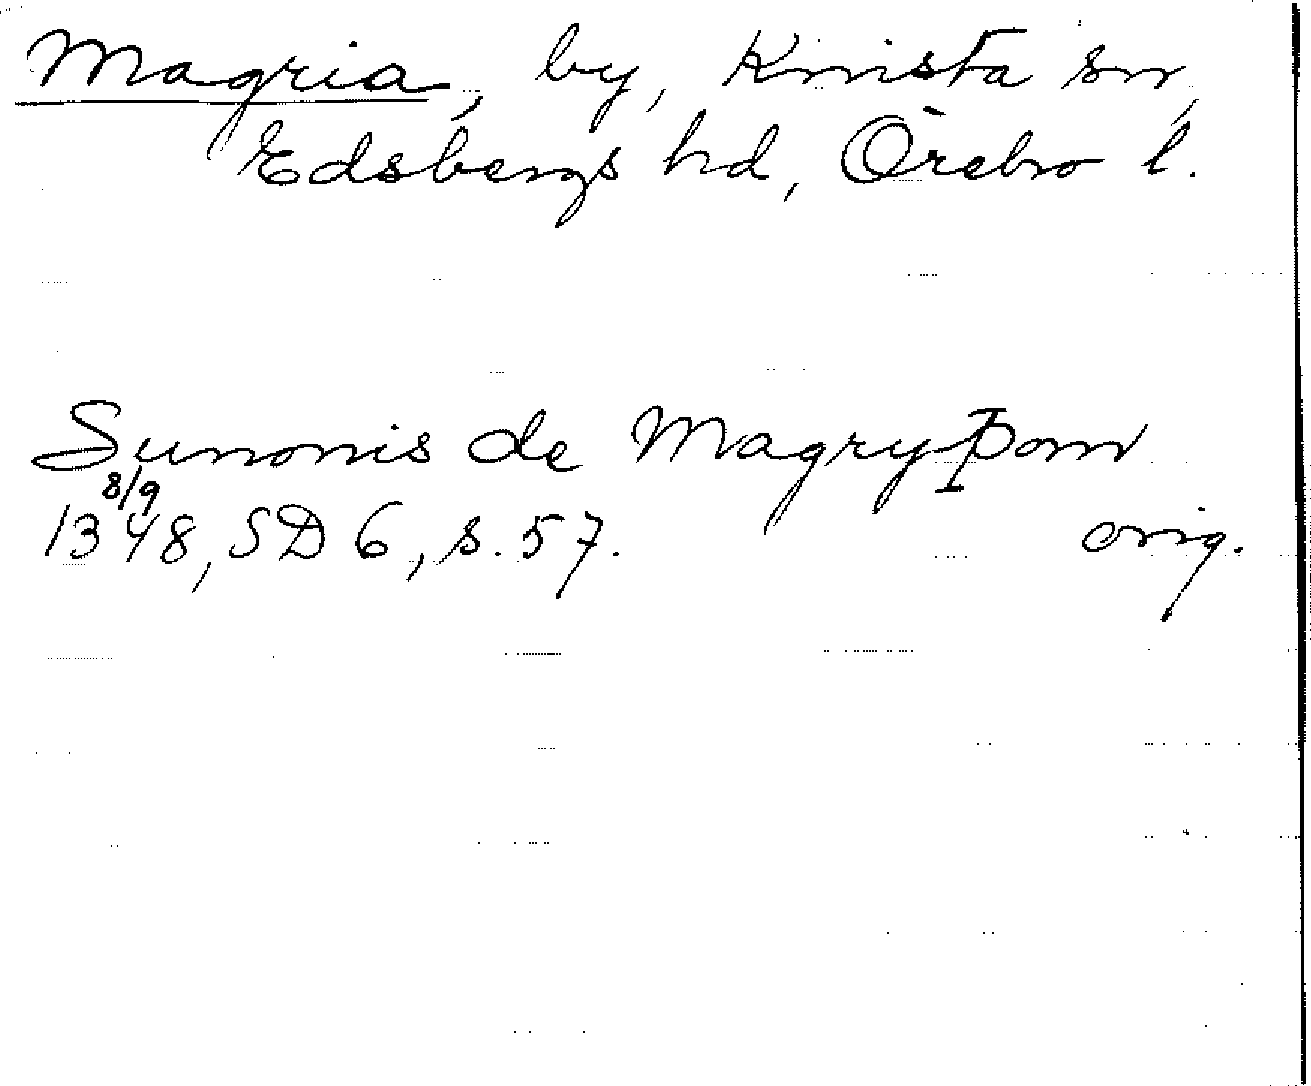 Magria, by, Knista sn,
Edsbergs hd, Örebro l.
Sunonis de Magryþom
8/9
1348, SD 6, s. 57. orig.